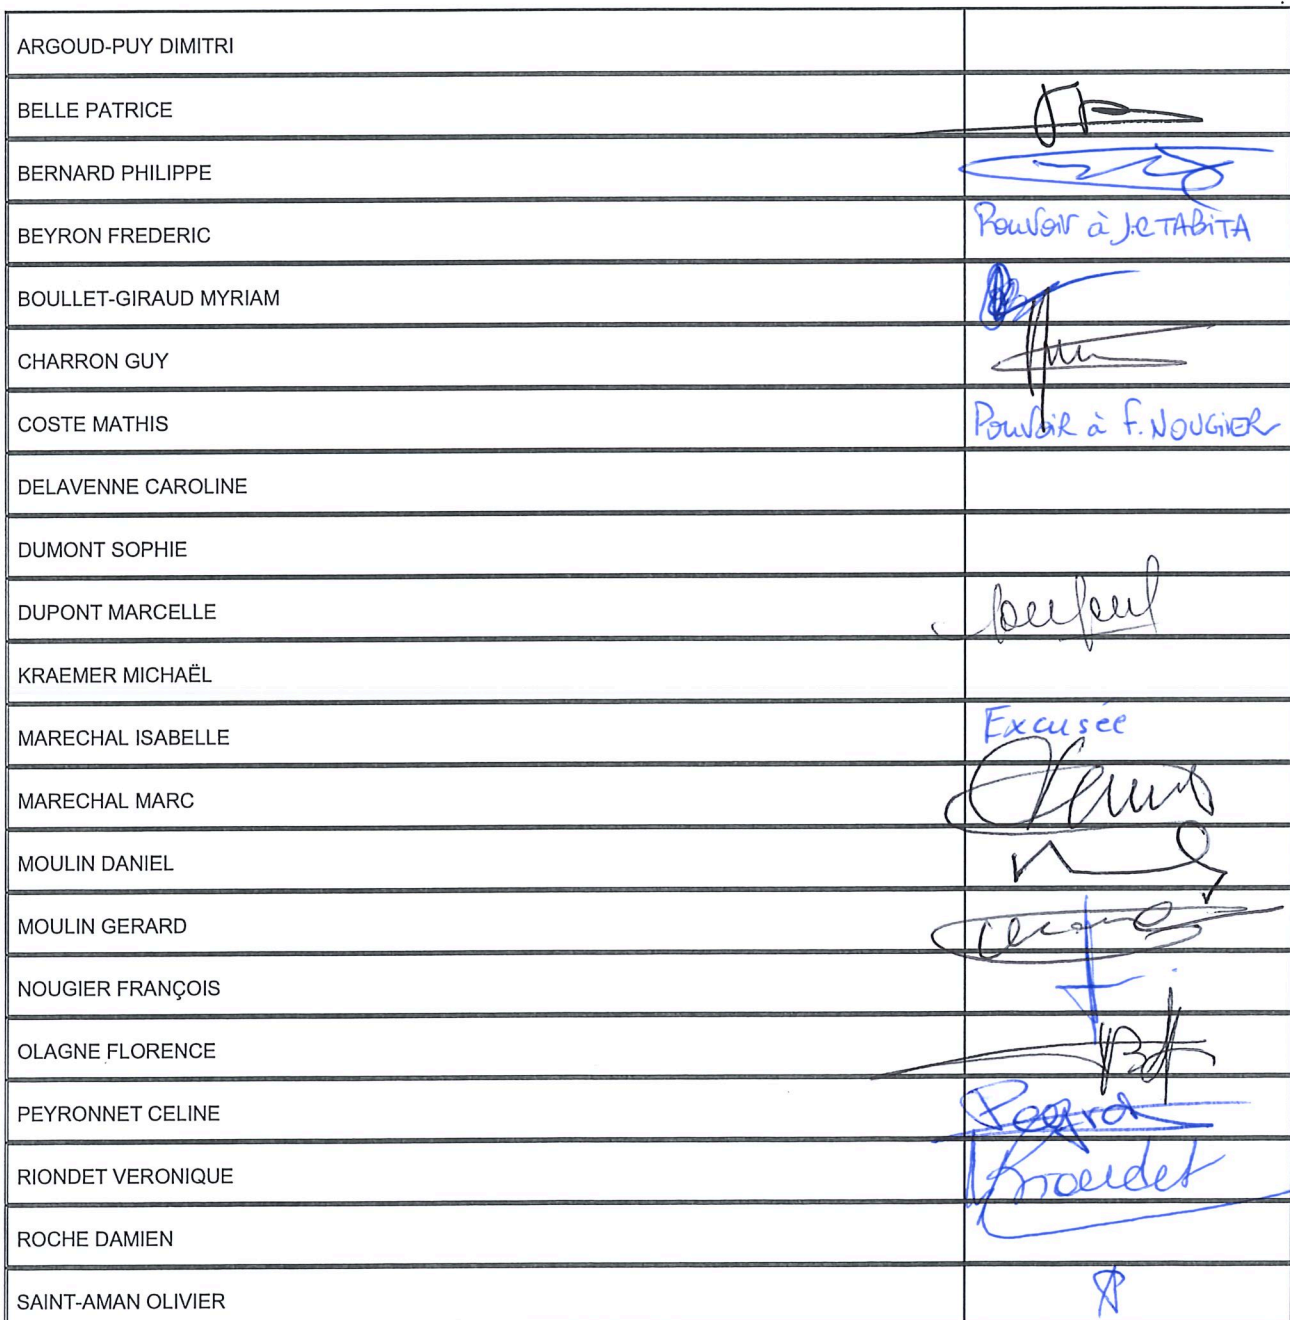 ARGOUD-PUY DIMITRI
BELLE PATRICE
BERNARD PHILIPPE
BEYRON FREDERIC Pouvoir à J.C TABITA
BOULLET-GIRAUD MYRIAM
CHARRON GUY
COSTE MATHIS Pouvoir à F. NOUGIER
DELAVENNE CAROLINE
DUMONT SOPHIE
DUPONT MARCELLE
KRAEMER MICHAËL
MARECHAL ISABELLE Excusée
MARECHAL MARC
MOULIN DANIEL
MOULIN GERARD
NOUGIER FRANÇOIS
OLAGNE FLORENCE
PEYRONNET CELINE
RIONDET VERONIQUE Riondet
ROCHE DAMIEN
SAINT-AMAN OLIVIER